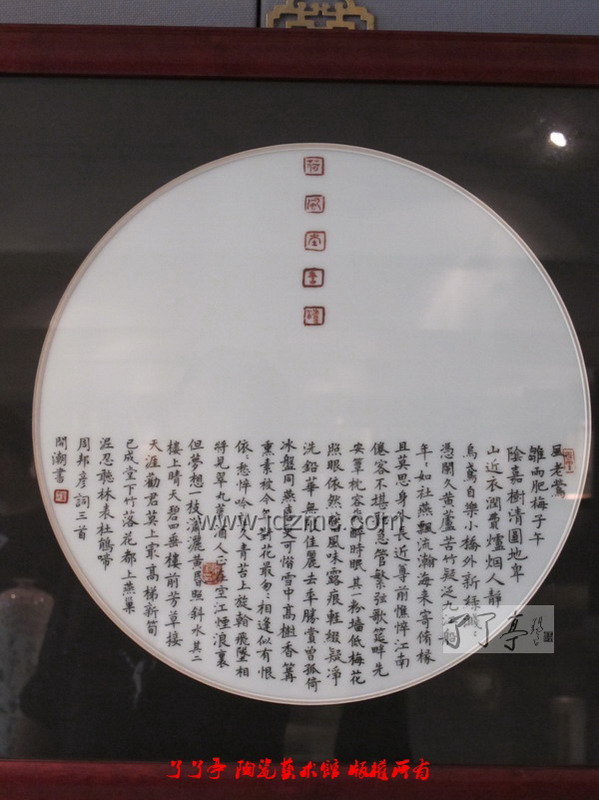 風老鶯
雛雨肥梅子午
陰嘉樹清圓地卑
山近衣潤費爐烟人靜
烏鳶自樂小橋外新綠濺
憑闌久黃蘆苦竹疑泛船
年年如社燕飄流瀚海来寄脩椽
且莫思身外長近尊前憔悴江南
倦客不堪聽急管繁弦歌筵畔先
安簟枕容我醉時眠其一粉墻低梅花
照眼依然舊風味露痕輕綴疑淨
洗鉛華無限佳麗去年勝賞曾孤倚
冰盤同燕喜更可惜雪中高樹香篝
熏素被今年對花最匆匆相逢似有恨
依依愁悴吟望久青苔上旋看飛墜相
將見翠丸薦酒人正在空江煙浪裏
但夢想一枝瀟灑黃昏照斜水其二
樓上晴天碧四垂樓前芳草接
天涯勸君莫上最高梯新筍
已成堂下竹落花都上燕巢
泥忍聽林表杜鵑啼
周邦彥詞三首
閒潮書
www.jdzmc.com
了了亭
了了亭 陶瓷藝术館 版權所有